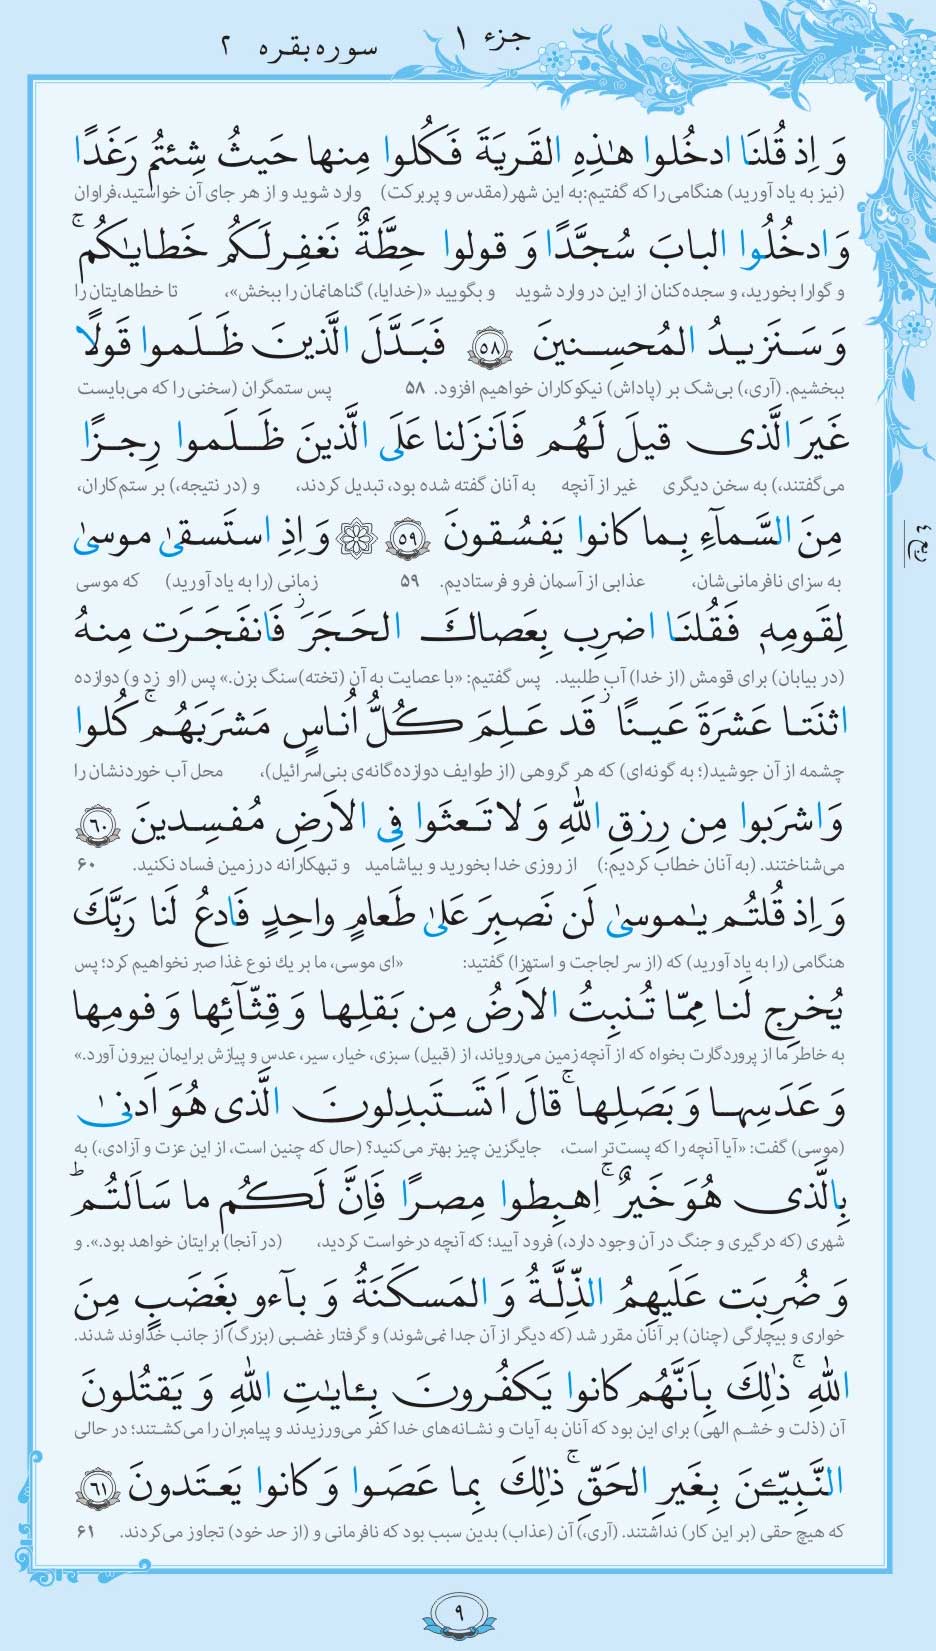 جزء ۱
سوره بقره ۲
وَ اِذ قُلنَا ادخُلوا هٰذِهِ القَریَةَ فَکُلوا مِنها حَیثُ شِئتُم رَغَدًا
(نیز به یاد آورید) هنگامی را که گفتیم:به این شهر(مقدس و پربرکت) وارد شوید و از هر جای آن خواستید،فراوان
وَادخُلُوا البابَ سُجَّدًا وَ قولوا حِطَّةٌ نَغفِرلَکُم خَطایاکُم ۚ
و گوارا بخورید، و سجده‌کنان از این در وارد شوید و بگویید «(خدایا،) گناهانمان را ببخش»، تا خطاهایتان را
وَ سَنَزیدُ المُحسِنینَ ﴿۵۸﴾ فَبَدَّلَ الَّذینَ ظَلَموا قَولًا
ببخشیم. (آری،) بی‌شک بر (پاداش) نیکوکاران خواهیم افزود. ۵۸ پس ستمگران (سخنی را که می‌بایست
غَیرَ الَّذی قیلَ لَهُم فَاَنزَلنا عَلَی الَّذینَ ظَلَموا رِجزًا
می‌گفتند،) به سخن دیگری غیر از آنچه به آنان گفته شده بود، تبدیل کردند، و (در نتیجه،) بر ستم‌کاران،
مِنَ السَّمآءِ بِما کانوا یَفسُقونَ ﴿۵۹﴾ ۞ وَ اِذِ استَسقیٰ موسیٰ
به سزای نافرمانی‌شان، عذابی از آسمان فرو فرستادیم. ۵۹ زمانی (را به یاد آورید) که موسی
ع
لِقَومِهٖ فَقُلنَا اضرِب بِعَصاكَ الحَجَرَ ۖ فَانفَجَرَت مِنهُ
(در بیابان) برای قومش (از خدا) آب طلبید. پس گفتیم: «با عصایت به آن (تخته)سنگ بزن.» پس (او زد و) دوازده
اثنَتا عَشرَةَ عَینًا ۖ قَد عَلِمَ کُلُّ اُناسٍ مَشرَبَهُم ۚ کُلوا
چشمه از آن جوشید(؛ به گونه‌ای) که هر گروهی (از طوایف دوازده‌گانه‌ی بنی‌اسرائیل)، محل آب خوردنشان را
وَاشرَبوا مِن رِزقِ اللّٰهِ وَ لا تَعثَوا فِی الاَرضِ مُفسِدینَ ﴿۶۰﴾
می‌شناختند. (به آنان خطاب کردیم:) از روزی خدا بخورید و بیاشامید و تبهکارانه در زمین فساد نکنید. ۶۰
وَ اِذ قُلتُم یٰموسیٰ لَن نَصبِرَ عَلیٰ طَعامٍ واحِدٍ فَادعُ لَنا رَبَّكَ
هنگامی (را به یاد آورید) که (از سر لجاجت و استهزا) گفتید: «ای موسی، ما بر یك نوع غذا صبر نخواهیم کرد؛ پس
یُخرِج لَنا مِمّا تُنبِتُ الاَرضُ مِن بَقلِها وَ قِثّآئِها وَ فومِها
به خاطر ما از پروردگارت بخواه که از آنچه زمین می‌رویاند، از (قبیل) سبزی، خیار، سیر، عدس و پیازش برایمان بیرون آورد.»
وَ عَدَسِها وَ بَصَلِها ۚ قالَ اَتَستَبدِلونَ الَّذی هُوَ اَدنیٰ
(موسی) گفت: «آیا آنچه را که پست‌تر است، جایگزین چیز بهتر می‌کنید؟ (حال که چنین است، از این عزت و آزادی،) به
بِالَّذی هُوَ خَیرٌ ۚ اِهبِطوا مِصرًا فَاِنَّ لَکُم ما سَاَلتُم ۗ
شهری (که درگیری و جنگ در آن وجود دارد،) فرود آیید؛ که آنچه درخواست کردید، (در آنجا) برایتان خواهد بود.». و
وَ ضُرِبَت عَلَیهِمُ الذِّلَّةُ وَ المَسکَنَةُ وَ بآءو بِغَضَبٍ مِنَ
خواری و بیچارگی (چنان) بر آنان مقرر شد (که دیگر از آن جدا نمی‌شوند) و گرفتار غضبی (بزرگ) از جانب خداوند شدند.
اللّٰهِ ۚ ذٰلِكَ بِاَنَّهُم کانوا یَکفُرونَ بِـٔایٰتِ اللّٰهِ وَ یَقتُلونَ
آن (ذلت و خشم الهی) برای این بود که آنان به آیات و نشانه‌های خدا کفر می‌ورزیدند و پیامبران را می‌کشتند؛ در حالی
النَّبِیّـٖنَ بِغَیرِ الحَقِّ ۚ ذٰلِكَ بِما عَصَوا وَ کانوا یَعتَدونَ ﴿۶۱﴾
که هیچ حقی (بر این کار) نداشتند. (آری،) آن (عذاب) بدین سبب بود که نافرمانی و (از حد خود) تجاوز می‌کردند. ۶۱
۹